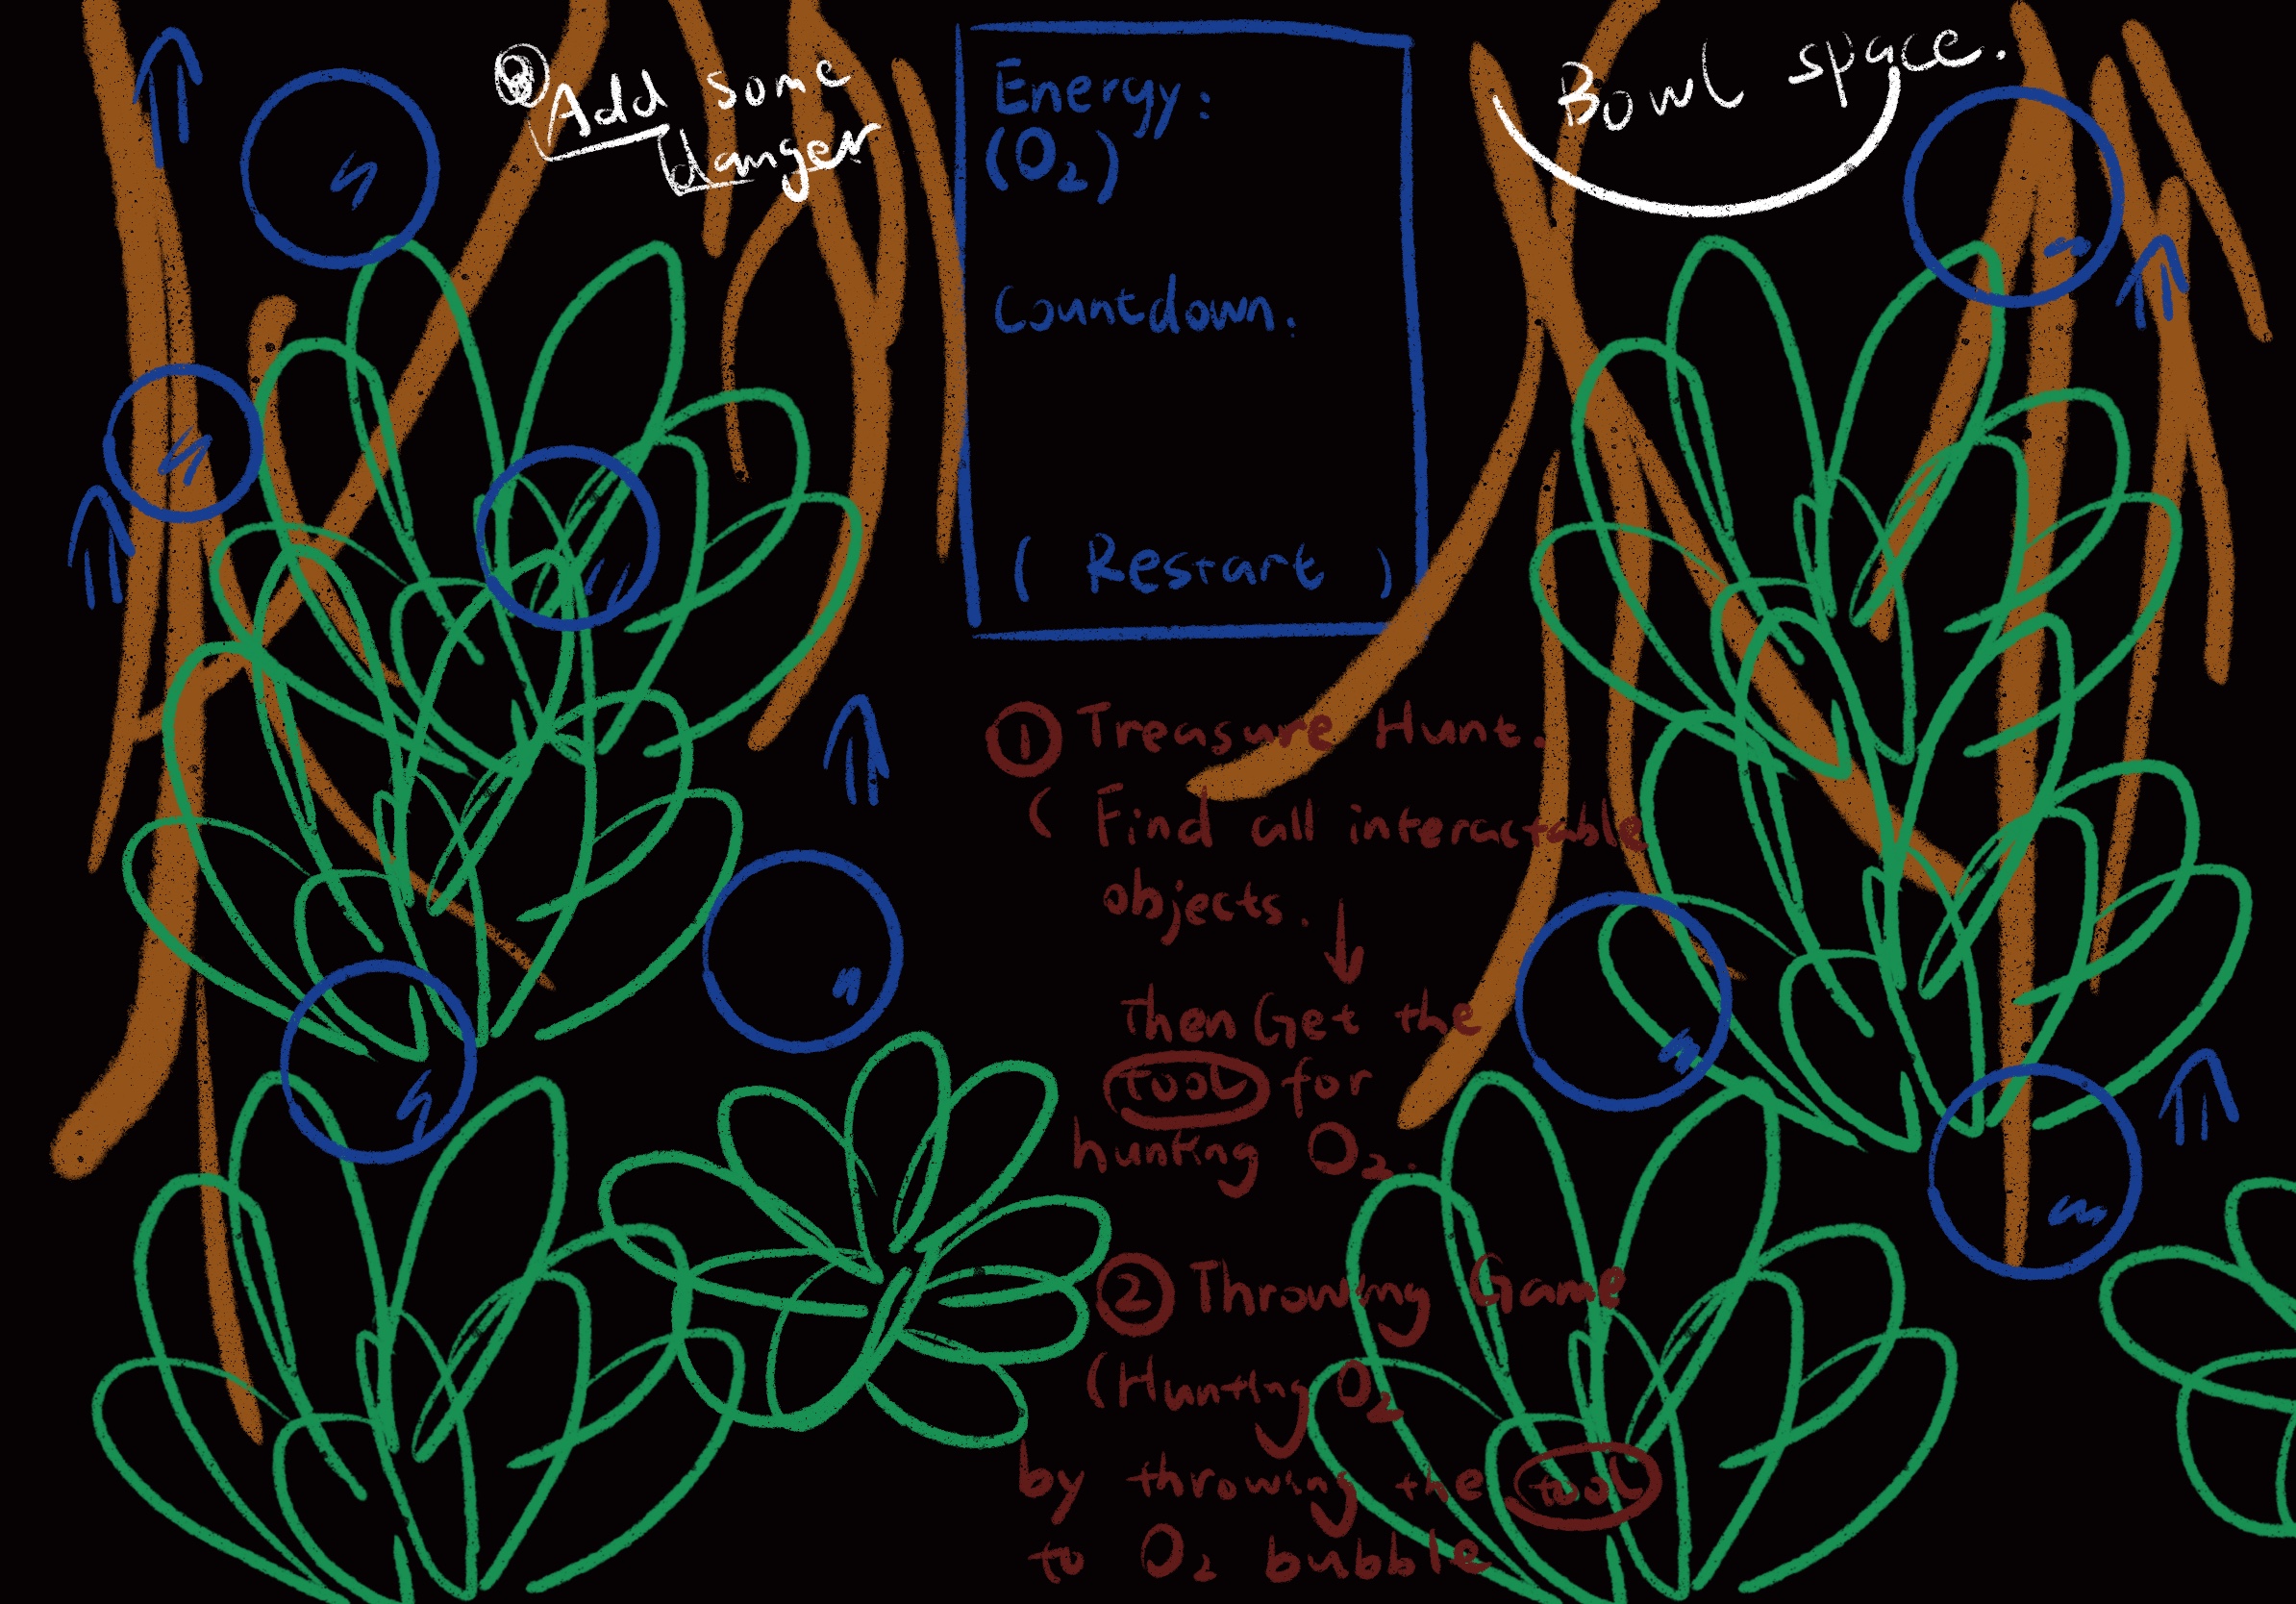 Add some
danger
Energy:
(O₂)
Countdown:
( Restart )
Bowl space.
① Treasure Hunt.
( Find all interactable
objects.
↓
then Get the
tool for
hunting O₂.
② Throwing Game
(Hunting O₂
by throwing the tool
to O₂ bubble